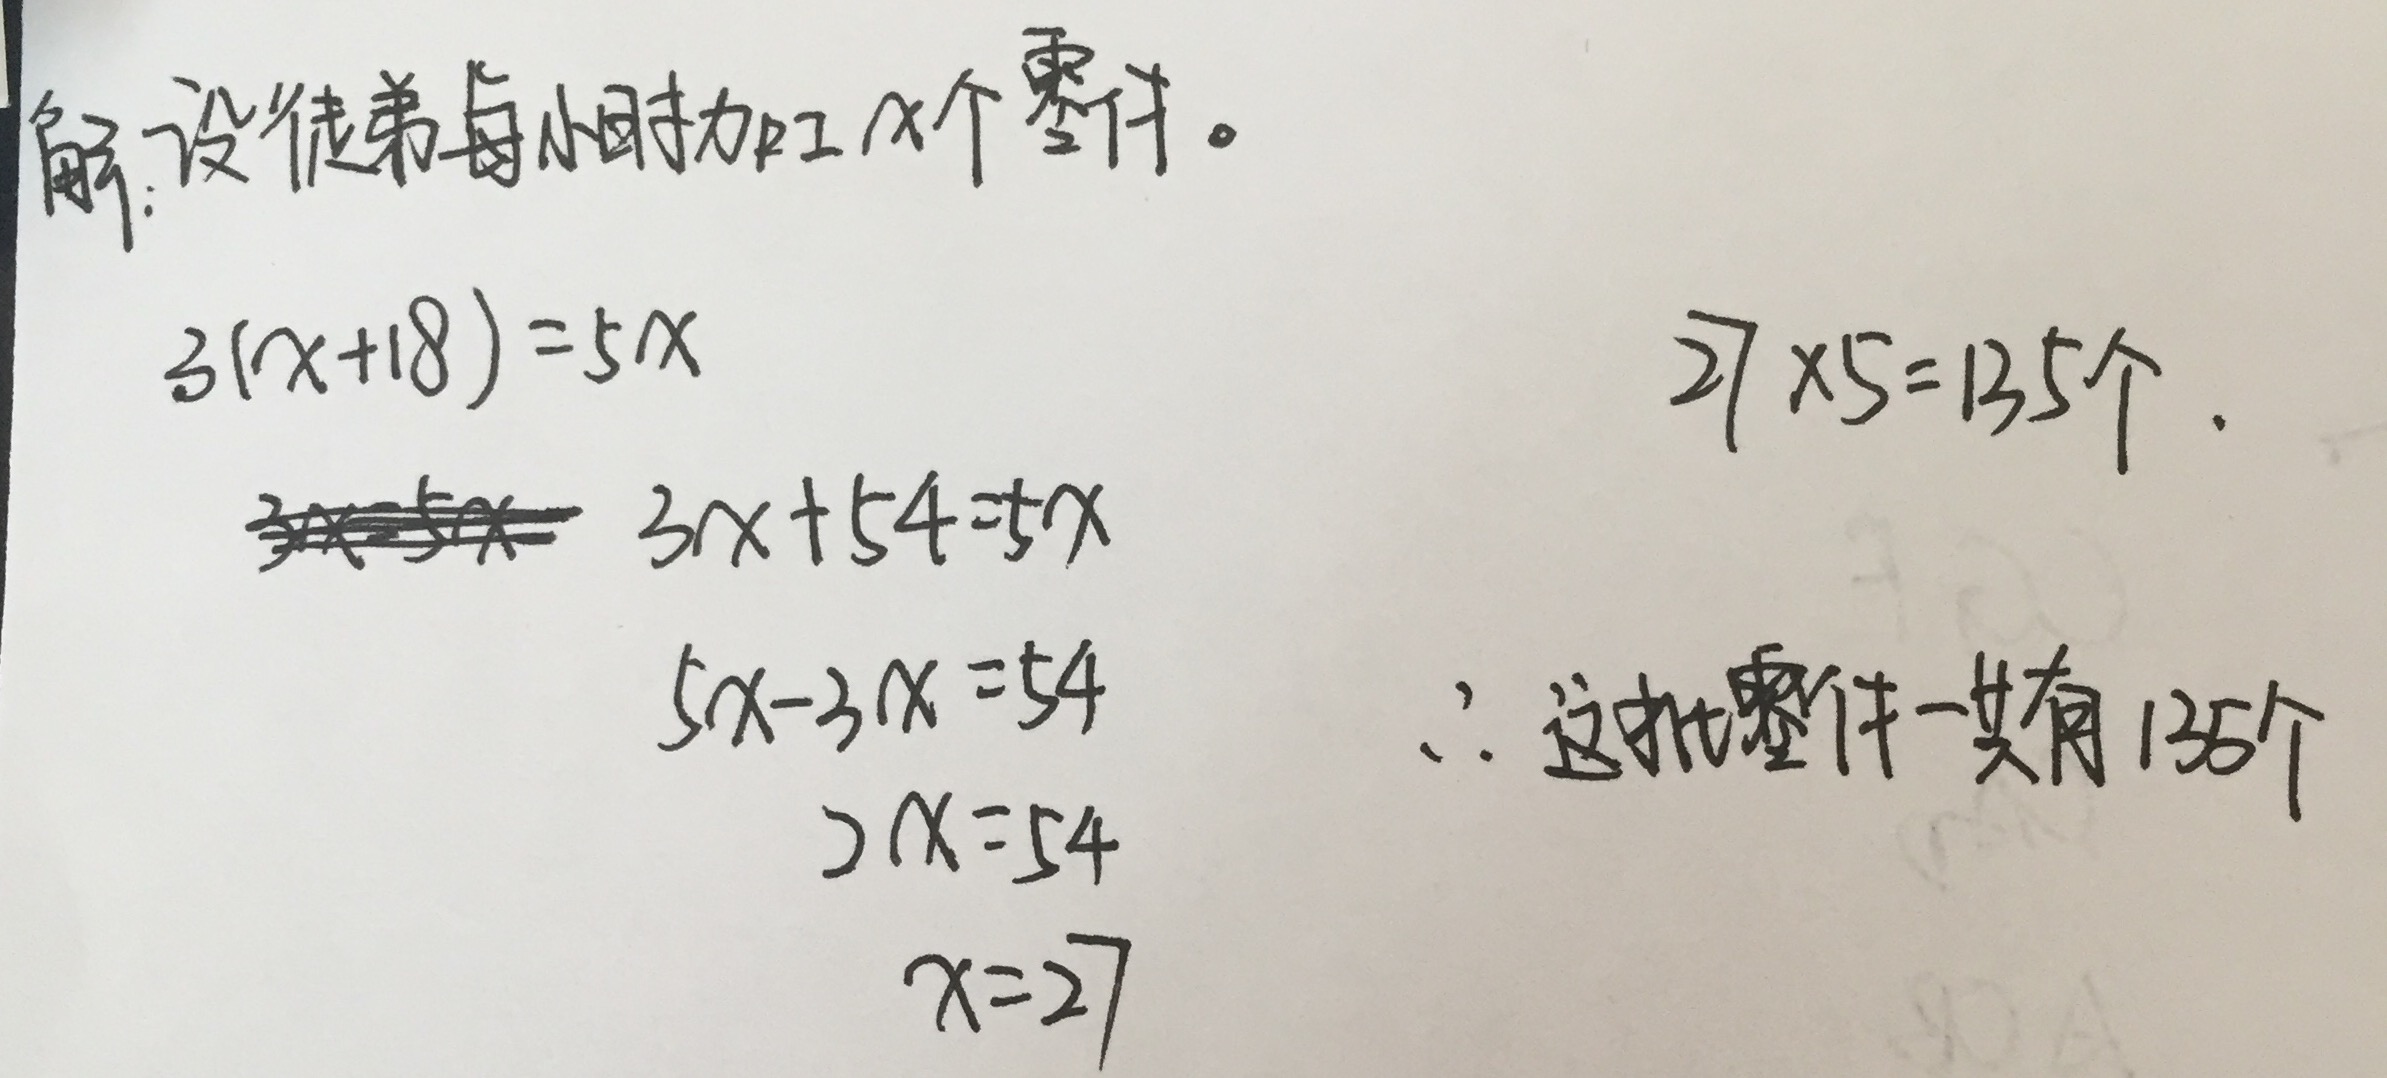 解:设徒弟每小时加工x个零件。
3(x+18)=5x
3x+54=5x
5x-3x=54
2x=54
x=27
27×5=135个.
∴这批零件一共有135个